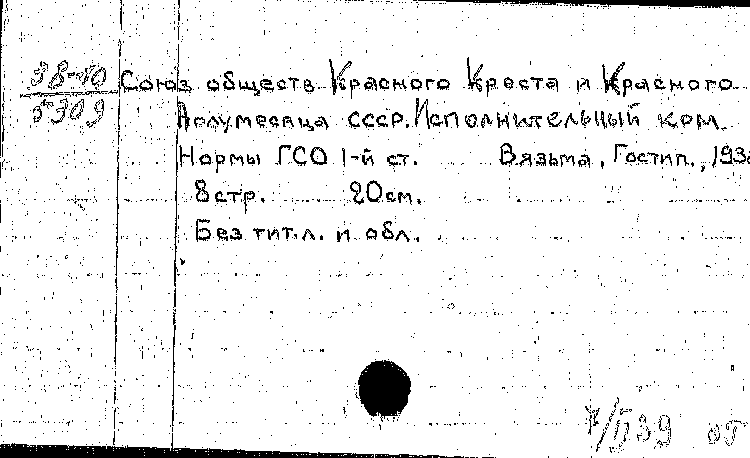 38-40
5309
Союз обществ Красного Креста и Красного
Полумесяца СССР. Исполнительный ком.
Нормы ГСО 1-й ст. Вязьма, Гостип., 193
8 стр. 20 см.
Без тит.л. и обл.
7/II 39 об